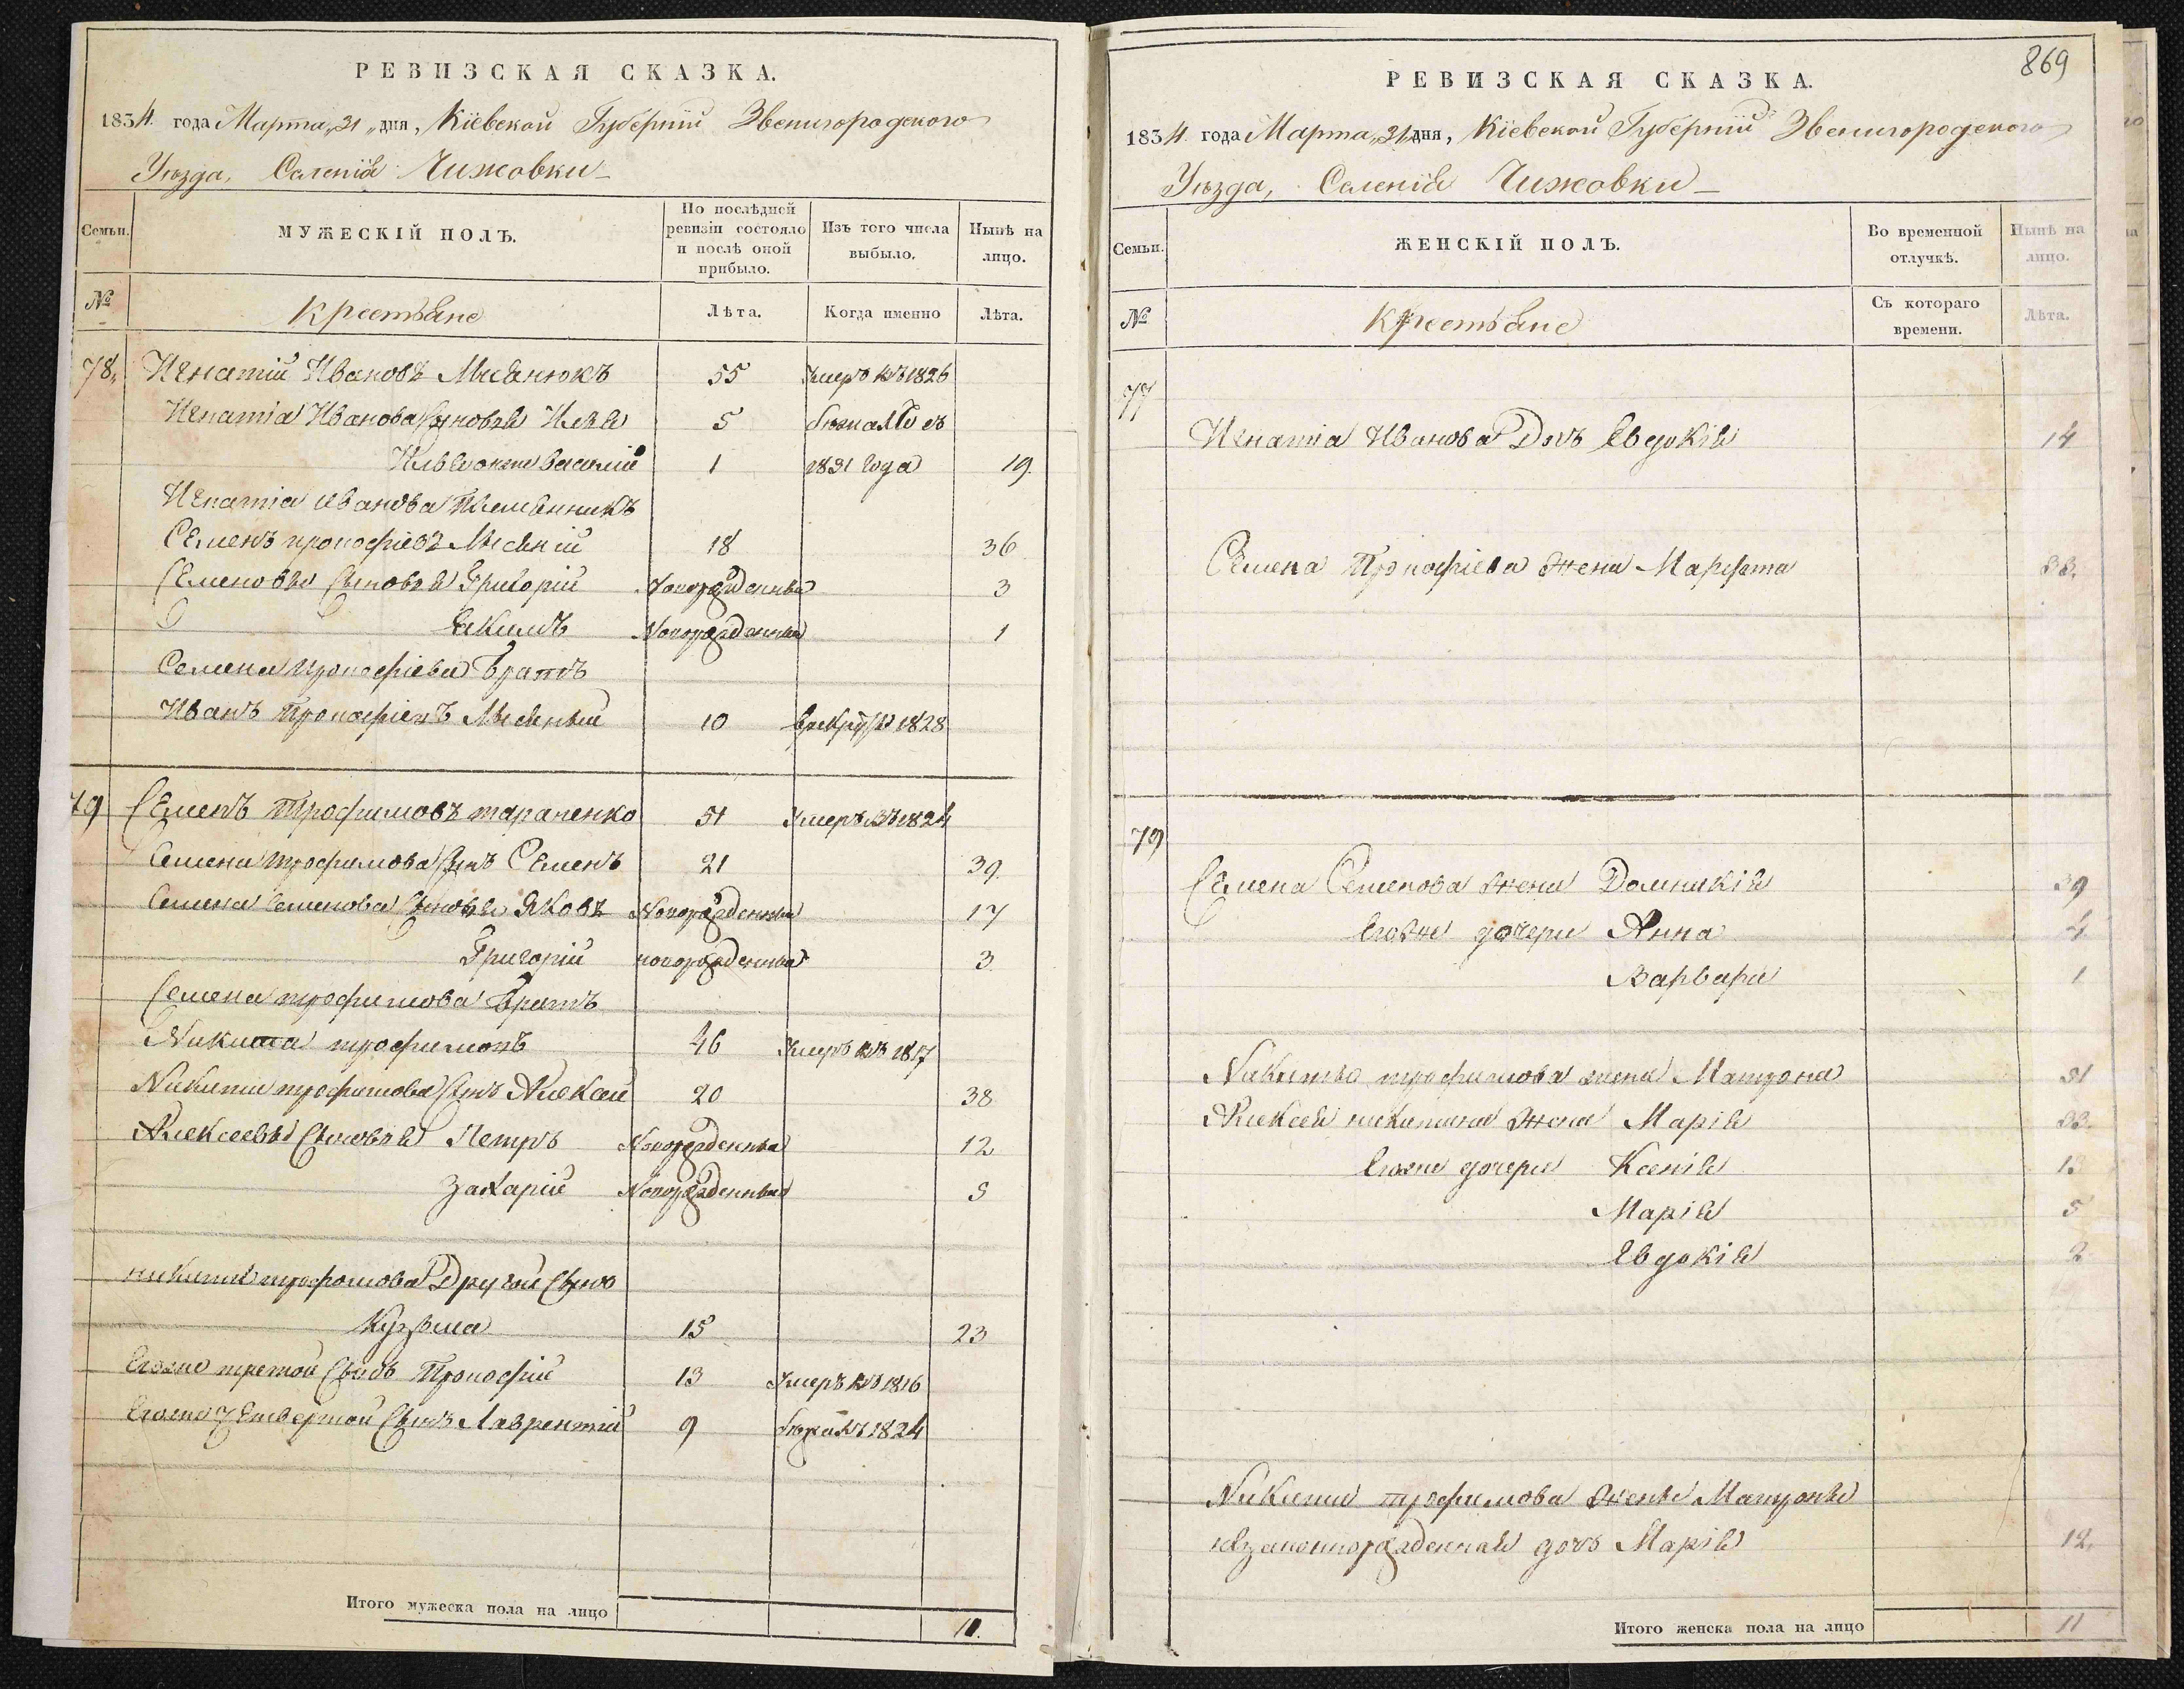 РЕВИЗСКАЯ СКАЗКА.
1834 года Марта „31„ дня, Кіевской Губерніи Звенигородского
Уѣзда, Селенія Чижовки
Семьи.
МУЖЕСКІЙ ПОЛЪ.
По послѣдней ревизіи состояло и послѣ оной прибыло.
Изъ того числа выбыло.
Нынѣ на лицо.
№
Крестьяне
Лѣта.
Когда именно
Лѣта.
78. Игнатій Ивановъ 55 Умеръ въ 1826
Игнатіа Иванова Сыновья Илья 5
Василій 1 1831 года 19.
Игнатіа Иванова Племянникъ
Семенъ 18 36
Семеновы Сыновья Григорій Новорожденный 3
Якимъ Новорожденный 1
Семена Братъ
Иванъ 10 1828
79 Семенъ Трофимовъ тараненко 51 Умеръ въ 1824
Семена трофимова Сынъ Семенъ 21 39.
Семена Семенова Сыновья Яковъ Новорожденный 17
Григорій новорожденный 3
Семена трофимова Братъ
Никита трофимовъ 46 Умеръ въ 1817
Никиты трофимова Сынъ Алексей 20 38
Алексеевы Сыновья Петръ Новорожденный 12
Захарій Новорожденный 5
никиты трофимова Другой Сынъ
Кузьма 15 23
Егоже третой Сынъ Прокофій 13 Умеръ въ 1816
Егоже Четвертой Сынъ Лаврентій 9 бѣжалъ 1824
Итого мужеска пола на лицо 10.
869
РЕВИЗСКАЯ СКАЗКА.
1834 года Марта „31„ дня, Кіевской Губерніи Звенигородского
Уѣзда, Селенія Чижовки
Семьи.
ЖЕНСКІЙ ПОЛЪ.
Во временной отлучкѣ.
Нынѣ на лицо.
№
Крестьяне
Съ котораго времени.
Лѣта.
77
Игнатіа Иванова Дочь Евдокія 14
Семена жена Марфа 33.
79
Семена Семенова жена Домникія 39
Егоже дочери Анна 4
Варвара 1
Никиты трофимова жена Матрона 51
Алексея никитина жена Марія 33.
Егоже дочери Ксенія 13
Марія 5
Евдокія 2
Никиты трофимова жены Матроны
дочь Марія 12.
Итого женска пола на лицо 11